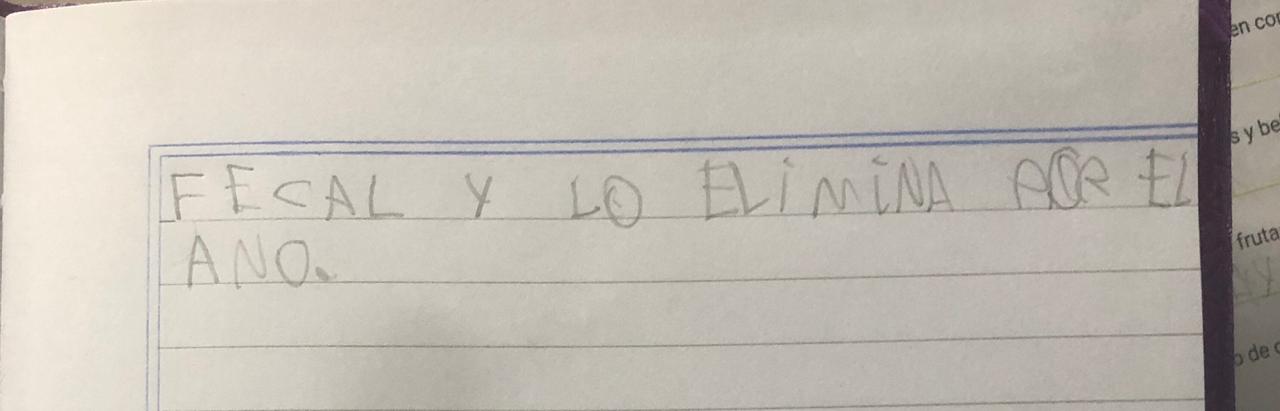 FECAL Y LO ELIMINA POR EL
ANO.
en co
s y be
fruta
o de